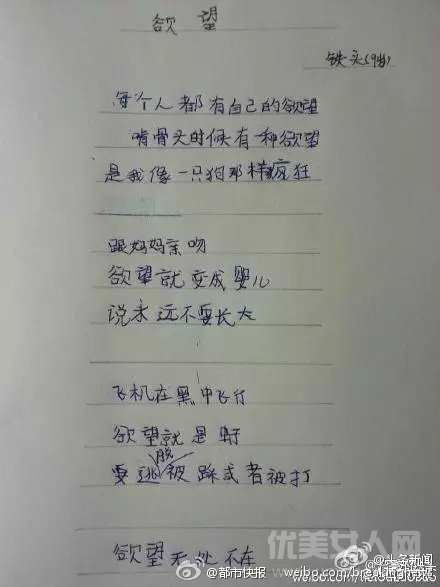 欲望
铁头(9岁)
每个人都有自己的欲望
啃骨头时候有一种欲望
是我像一只狗那样疯狂
跟妈妈亲吻
欲望就变成婴儿
说永远不要长大
飞机在黑中飞行
欲望就是野
要逃脱被踩或者被打
欲望无处不在
优美女人网
@头条新闻
@都市快报